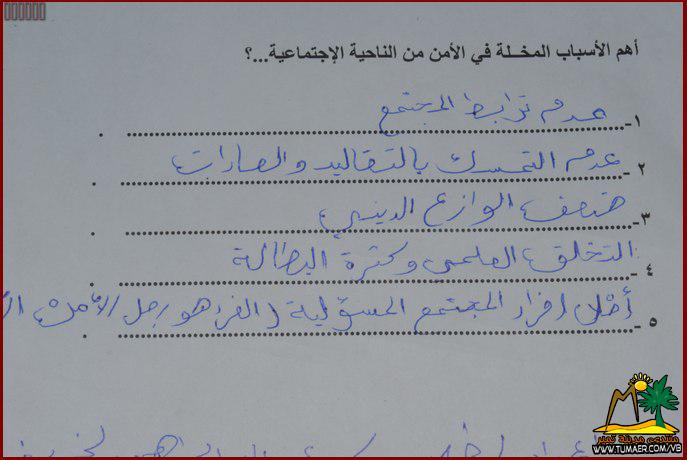 أهم الأسباب المخلة في الأمن من الناحية الإجتماعية...؟
١- عدم ترابط المجتمع
٢- عدم التمسك بالتقاليد والعادات
٣- ضعف الوازع الديني
٤- التخلف العلمي وكثرة البطالة
٥- أفراد المجتمع المسؤلية (الفرد هو رجل الأمن
منتدى مدينة تمير
WWW.TUMAER.COM/VB